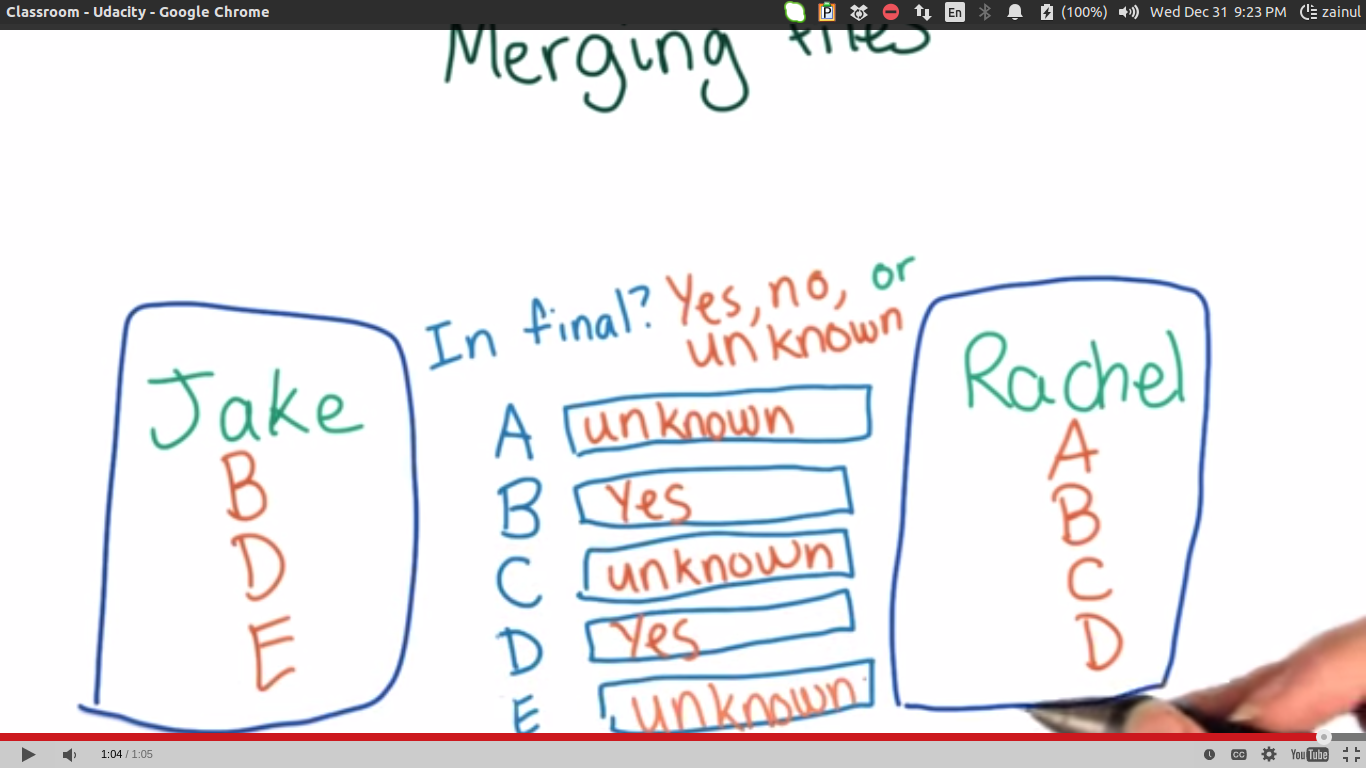 Classroom - Udacity - Google Chrome
En
(100%)
Wed Dec 31 9:23 PM
zainul
Merging files
In final? Yes, no, or
unknown
Jake
B
D
E
A unknown
B Yes
C unknown
D Yes
E unknown
Rachel
A
B
C
D
1:04 / 1:05
CC
YouTube